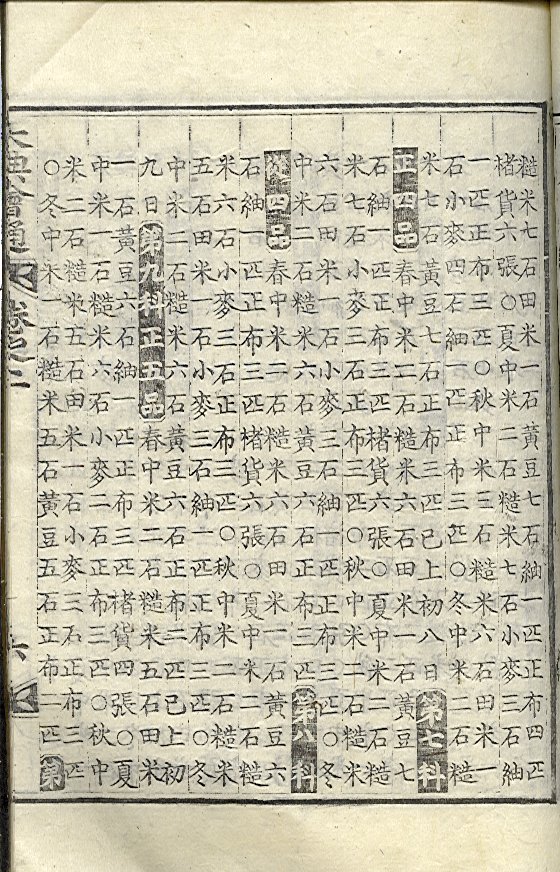 糙米七石田米一石黃豆七石紬一匹正布四匹
楮貨六張○夏中米二石糙米七石小麥三石紬
一匹正布三匹○秋中米三石糙米六石田米一
石小麥四石紬一匹正布三匹○冬中米二石糙
米七石黃豆七石正布三匹已上初八日第七科
正四品春中米二石糙米六石田米一石黃豆七
石紬一匹正布三匹楮貨六張○夏中米二石糙
米七石小麥三石正布三匹○秋中米二石糙米
六石田米一石小麥三石紬一匹正布三匹○冬
中米二石糙米六石黃豆六石正布三匹第八科
從四品春中米二石糙米六石田米一石黃豆六
石紬一匹正布三匹楮貨六張○夏中米二石糙
米六石小麥三石正布三匹○秋中米二石糙米
五石田米一石小麥三石紬一匹正布三匹○冬
中米二石糙米六石黃豆六石正布二匹已上初
九日第九科正五品春中米二石糙米五石田米
一石黃豆六石紬一匹正布三匹楮貨四張○夏
中米一石糙米六石小麥二石正布三匹○秋中
米二石糙米五石田米一石小麥三石正布三匹
○冬中米一石糙米五石黃豆五石正布二匹第
大典會通 卷之二 六